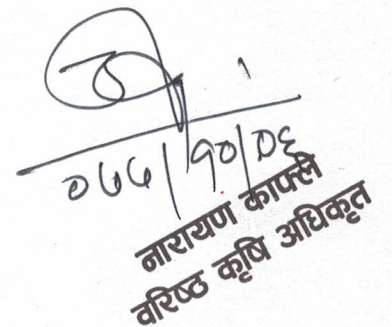 ०७७/१०/०६
नारायण काफ्ले
वरिष्ठ कृषि अधिकृत